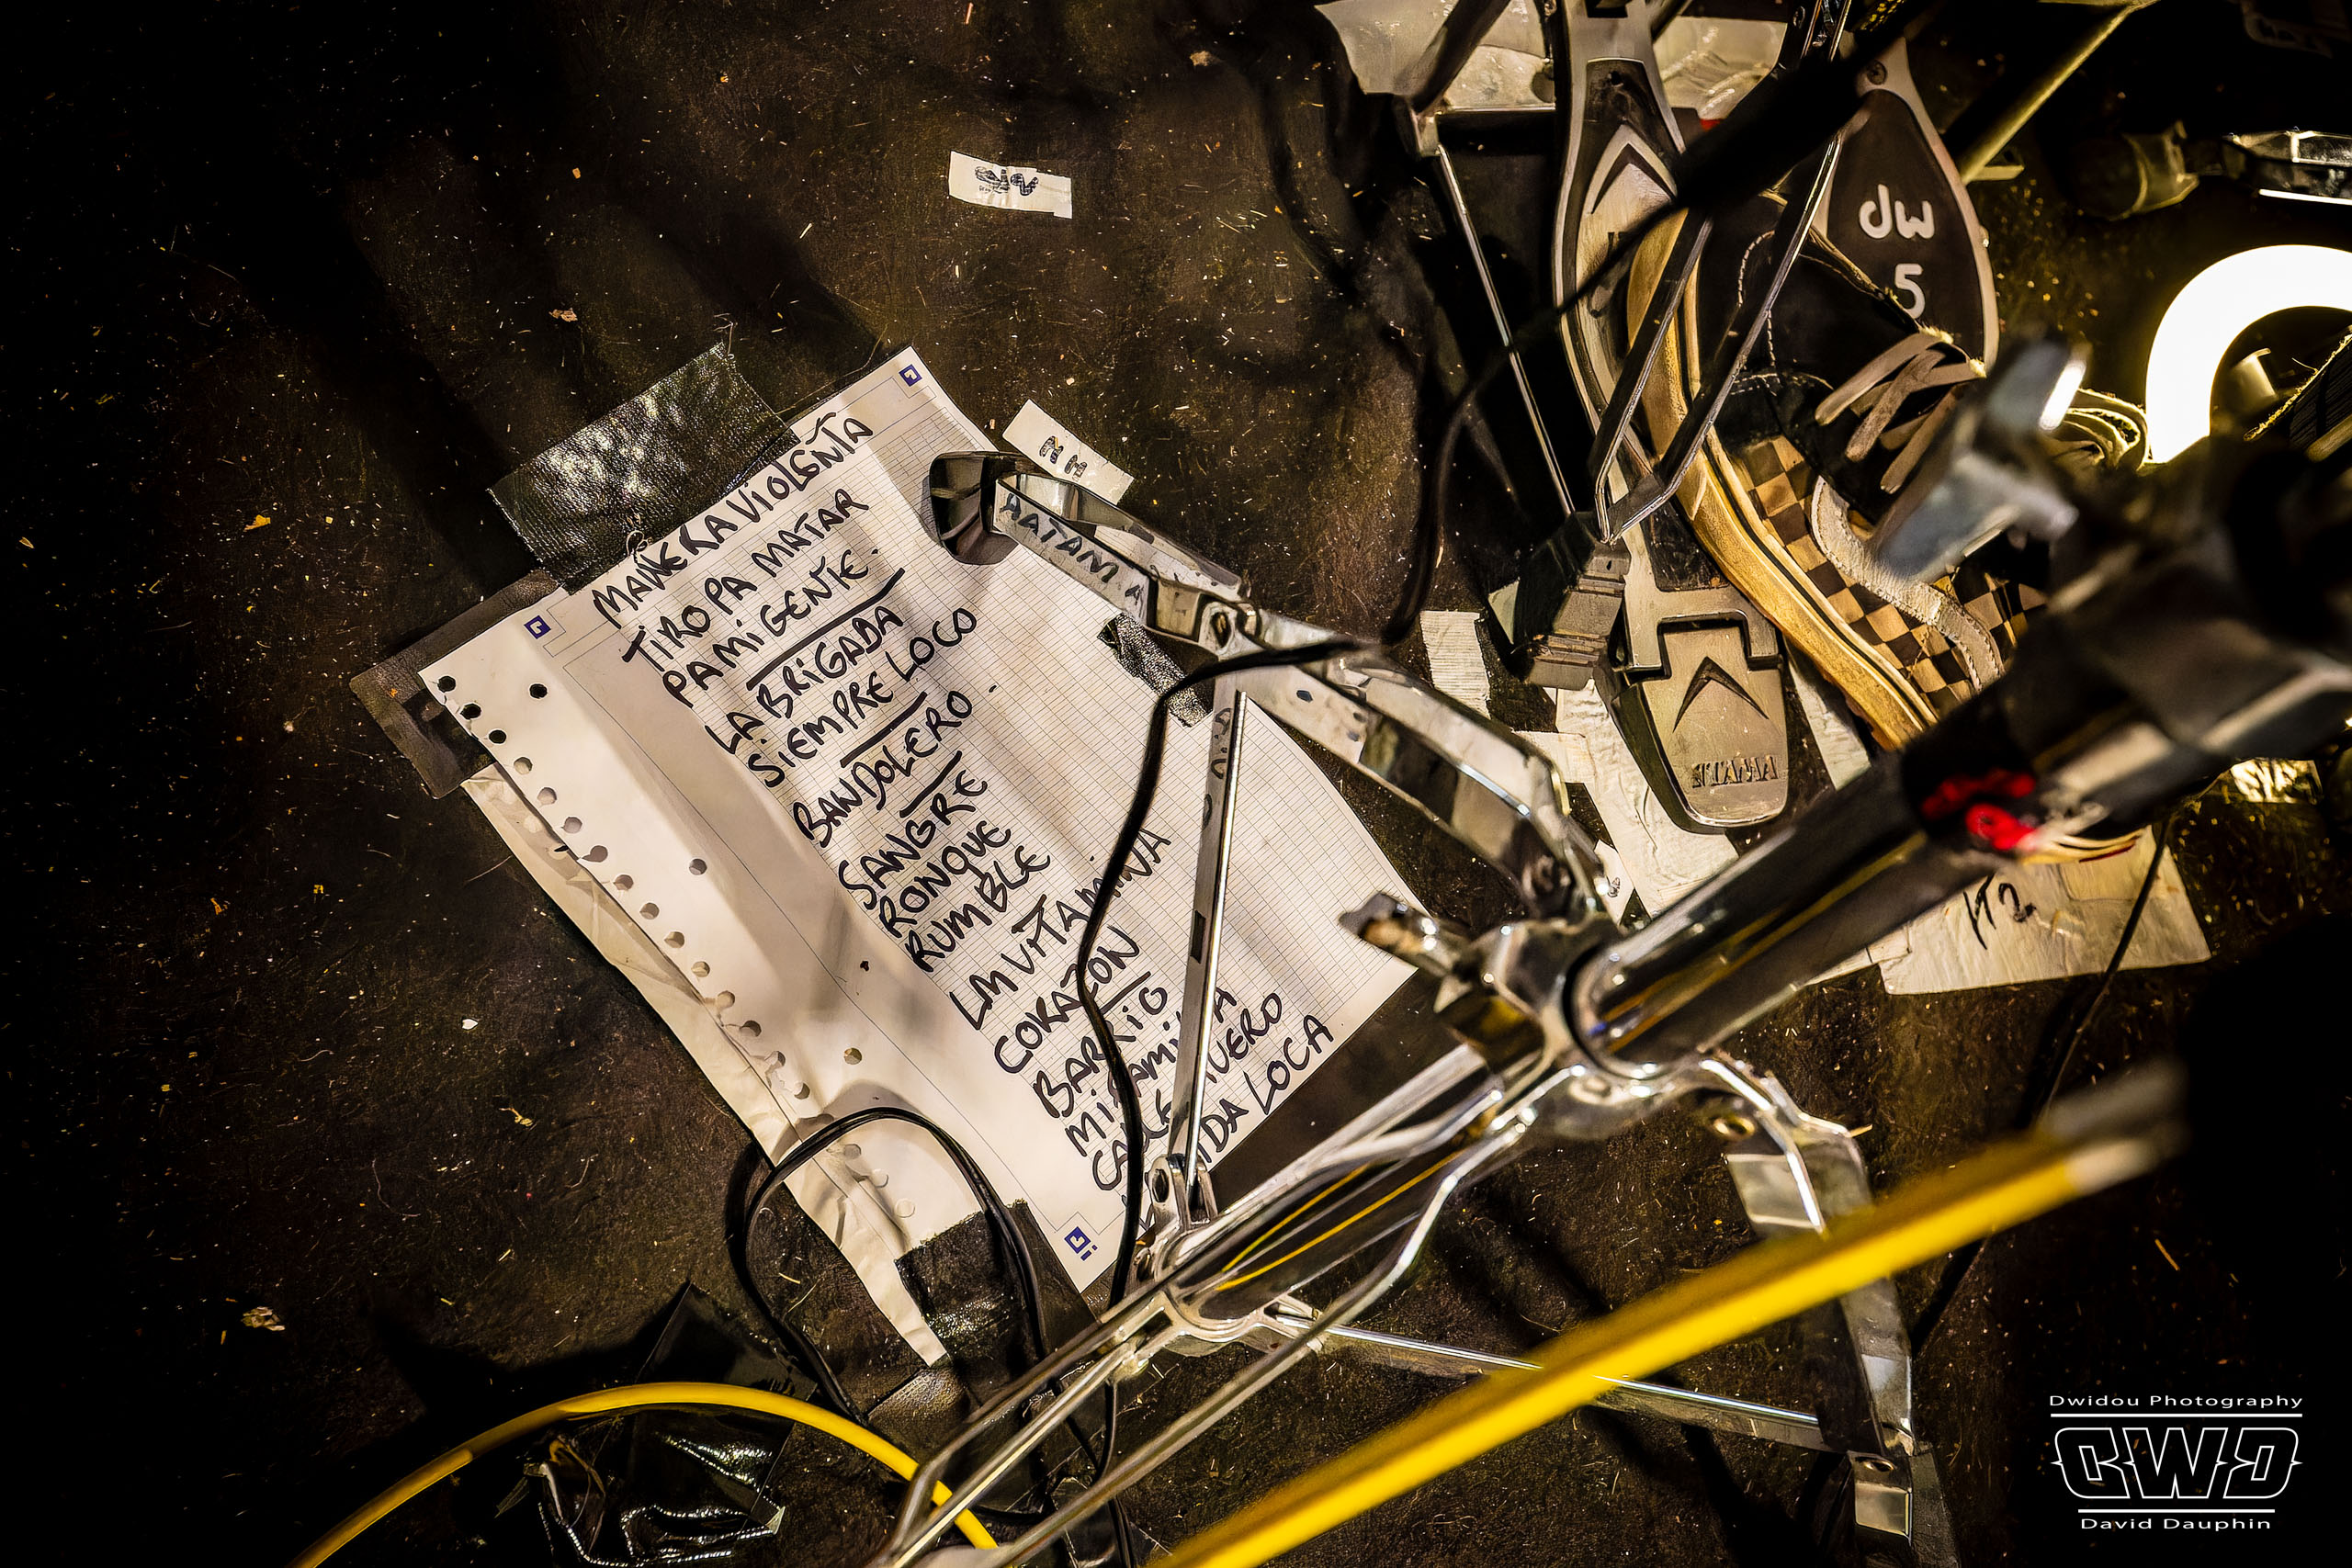 MANERA VIOLENTA
TIRO PA MATAR
PA MI GENTE.
LA BRIGADA
SIEMPRE LOCO
BANDOLERO.
SANGRE
RONQUE
RUMBLE
LM VITAMINVA
CORAZON
BARRIO
MI
LOCA
HT2
dw
5
YAMAHA
Dwidou Photography
DWD
David Dauphin